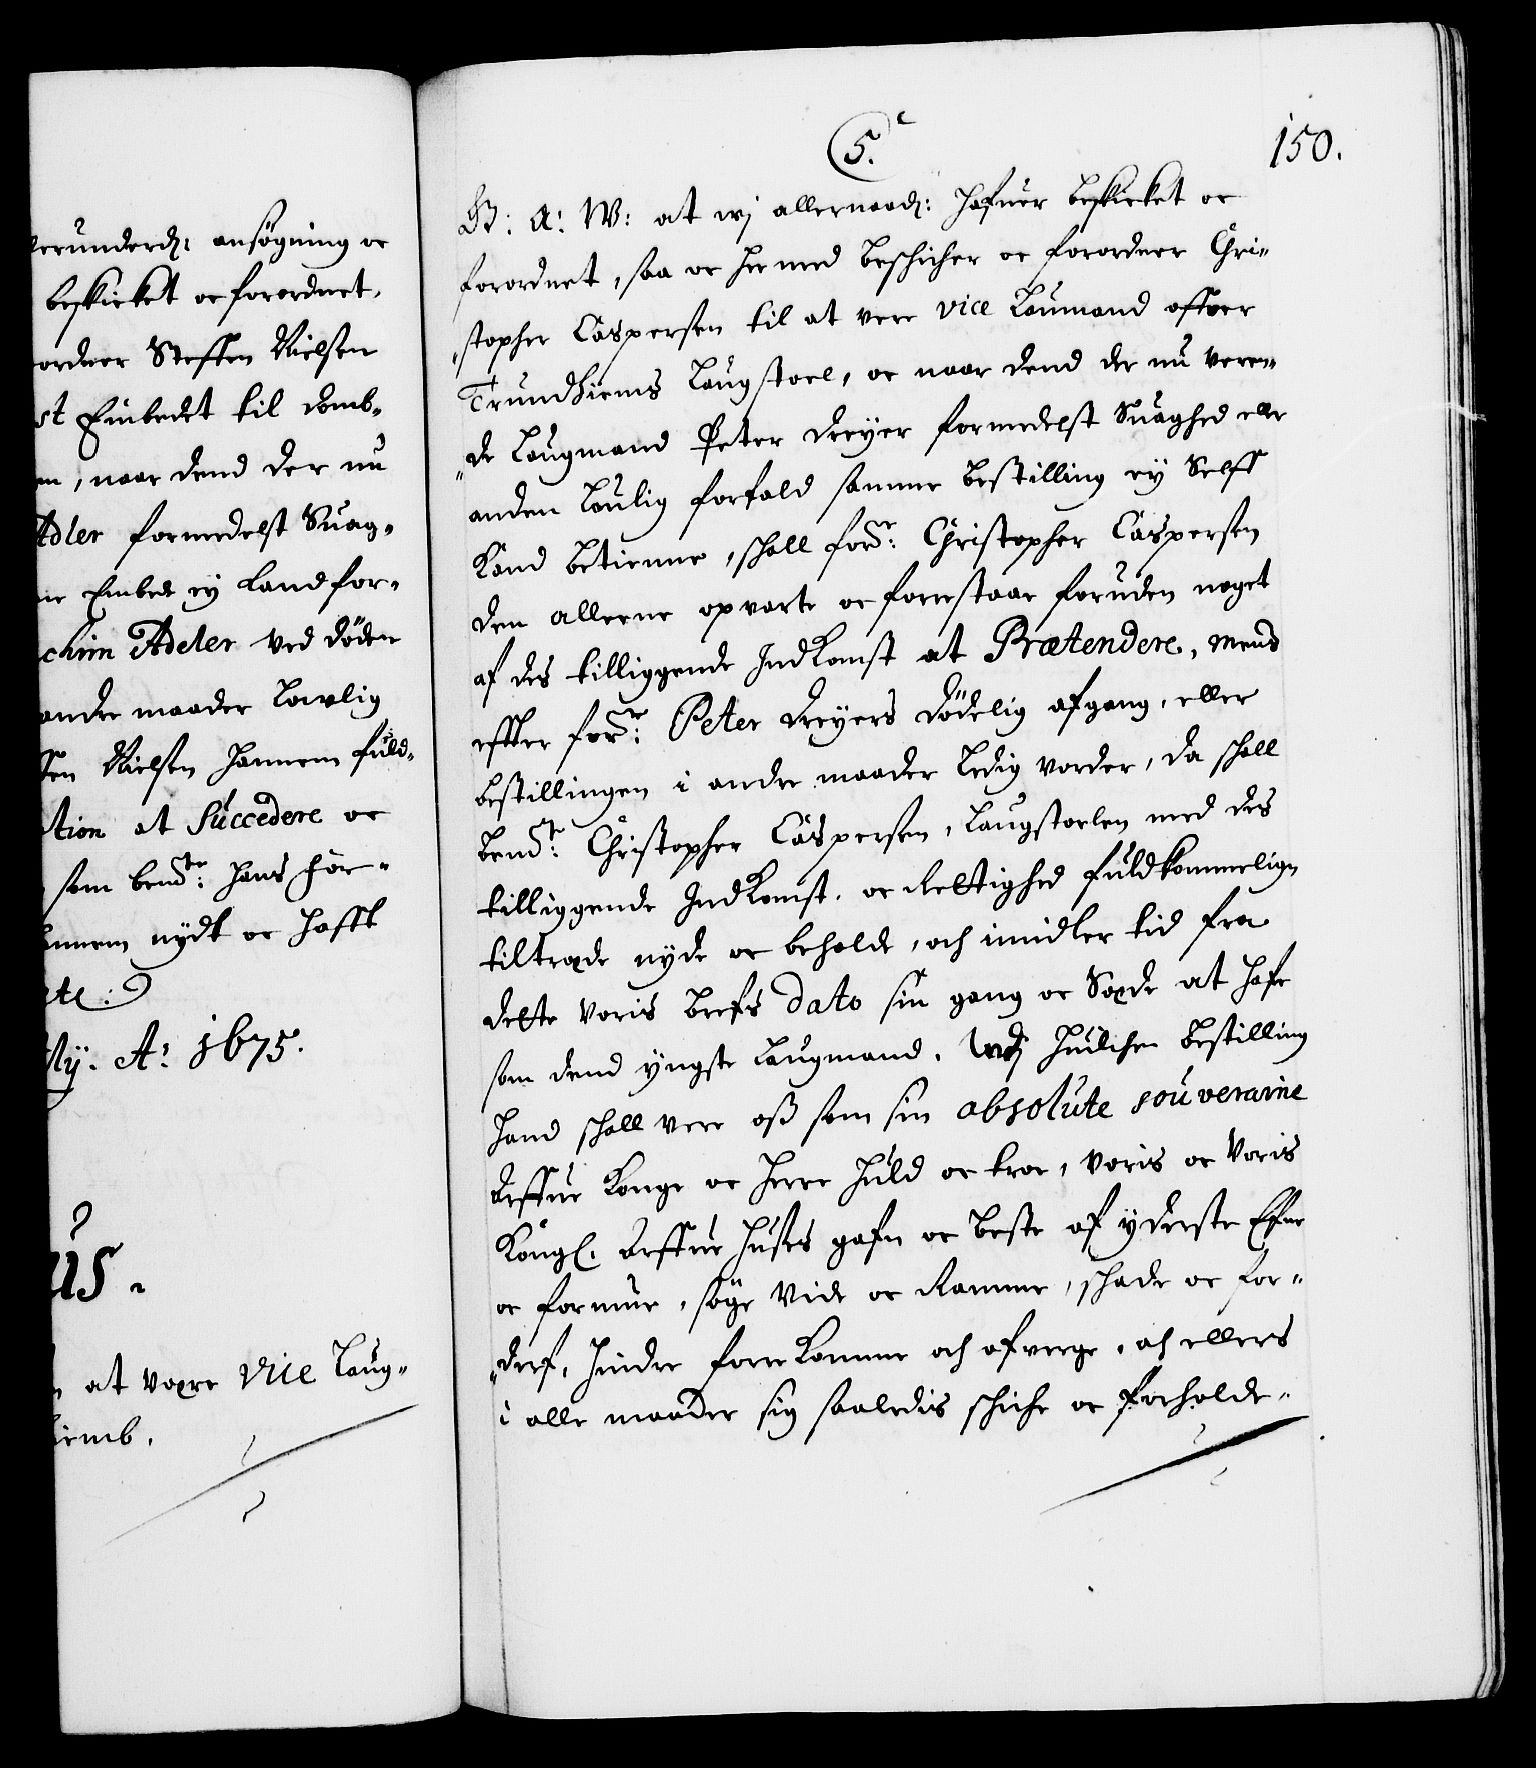 erunderd: ansøgning oc
beskicket oc forordnet,
ordner Steffen Nielsen
st Embedet til domb-
en, naar dend der nu
Adler formedelst Suag-
me Embede ej kand for-
chim Adeler ved döden
andre maader Lowlig
sen Nielsen hannem fuld-
tion at Succedere oc
som bemte: hans for-
annem nÿdt oc hafft
etc:
Aÿ: Ao: 1675.
us.
at være Vice Laug-
iemb.
5.
150.
G: A: W: at wj allernaad: hafuer beskicket oc
forordnet, saa oc hermed beschicher oc forordner Chri-
stopher Caspersen til at vere vice Laumand offuer
Trundhiems Laugstoel, oc naar dend der nu veren-
de Laugmand Peter Dreÿer formedelst Suaghed eller
anden Loulig forfald samme bestilling eÿ Selff
kand betienne, schall forne: Christopher Caspersen
den alleene opvarte oc forestaar foruden noget
af des tilliggende Indkomst at Prætendere, mens
effter forne: Peter Dreÿers Dödelig afgang, eller
bestillingen i andre maader Ledig vorder, da schall
bemte: Christopher Caspersen, Laugstoelen med des
tilliggende Indkomst, oc Rettighed fuldkommelign
tiltræde nÿde oc beholde, och imidler tid fra
dette voris brefs dato sin gang oc Sæde at hafe
som dend yngste Laugmand. Udj huilchen bestilling
hand schall vere oß som sin absolute souveraine
Arffue Konge oc Herre huld oc troe, voris oc Voris
Kongl. Arffue huses gafn oc beste af ÿderste Efne
oc formue, söge vide oc Ramme, schade oc for-
derf, hindre forrekomme och afverge, och ellers
i alle maader sig saaledis schiche oc forholde.